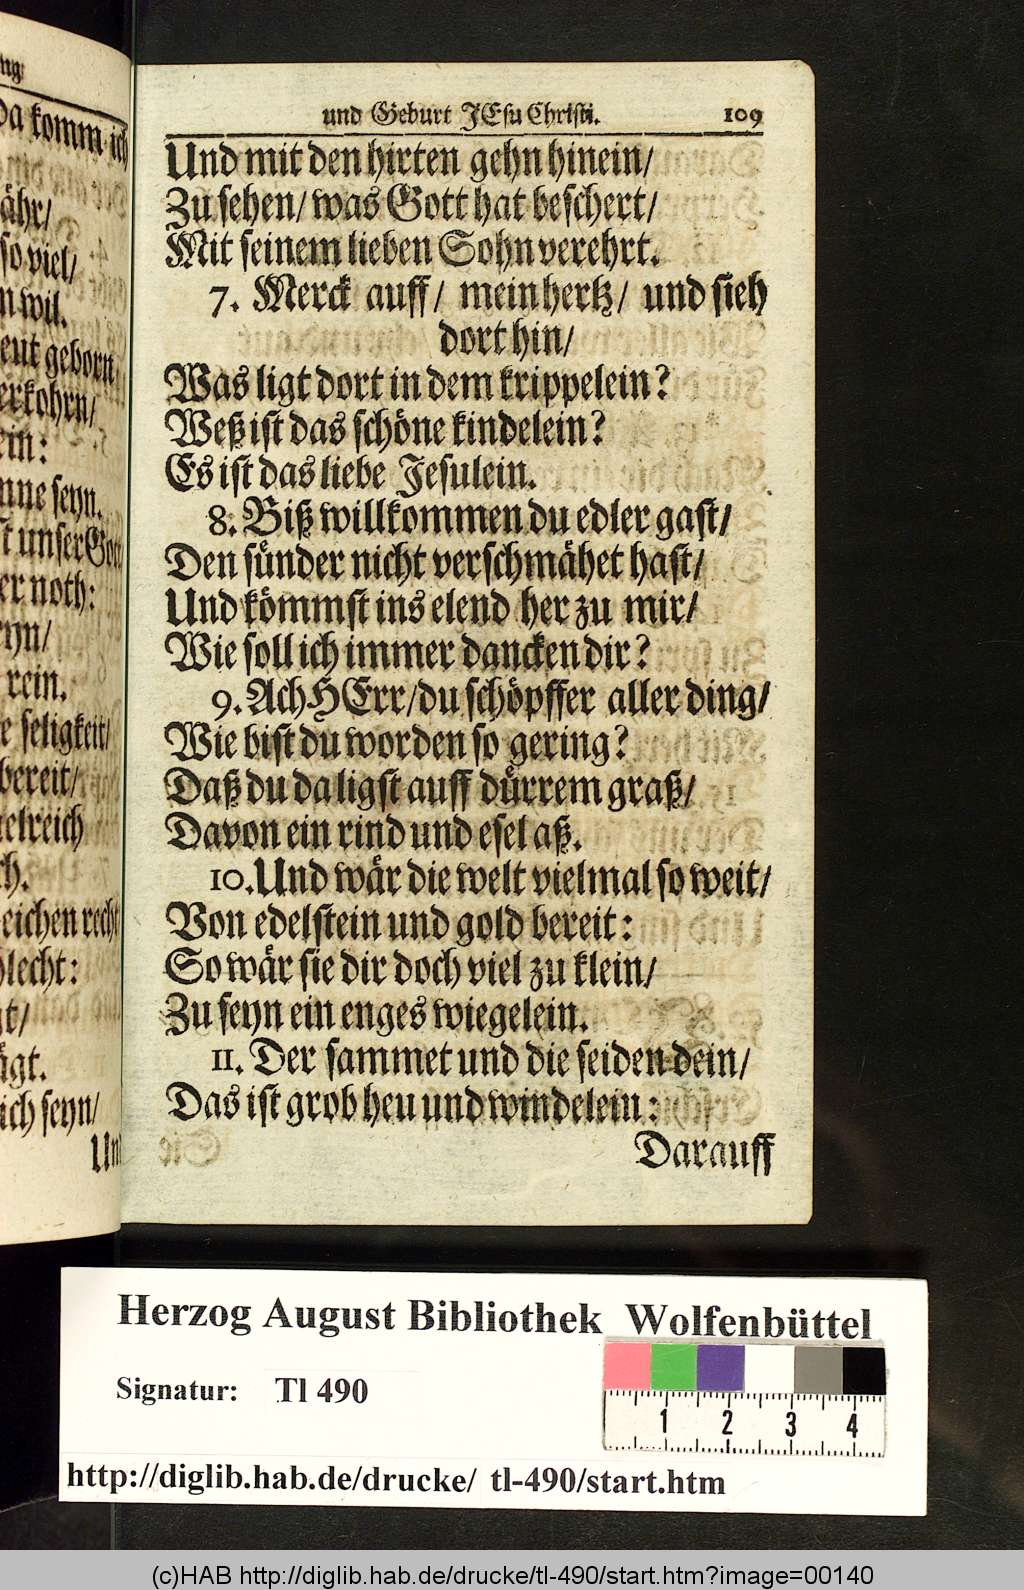 ng
Da komm ich
ähr/
so viel/
n wil.
eut geborn
erkohrn/
ein:
nne seyn.
st unser Gott
er noth:
eyn/
rein.
e seligkeit/
bereit/
elreich
ch.
eichen recht
hlecht:
gt/
ägt.
ich seyn/
Und
und Geburt JEsu Christi. 109
Und mit den hirten gehn hinein/
Zu sehen/ was Gott hat beschert/
Mit seinem lieben Sohn verehrt.
7. Merck auff/ mein hertz/ und sieh
dort hin/
Was ligt dort in dem krippelein?
Weß ist das schöne kindelein?
Es ist das liebe Jesulein.
8. Biß willkommen du edler gast/
Den sünder nicht verschmähet hast/
Und kömmst ins elend her zu mir/
Wie soll ich immer dancken dir?
9. Ach HErr/ du schöpffer aller ding/
Wie bist du worden so gering?
Daß du da ligst auff dürrem graß/
Davon ein rind und esel aß.
10. Und wär die welt vielmal so weit/
Von edelstein und gold bereit:
So wär sie dir doch viel zu klein/
Zu seyn ein enges wiegelein.
11. Der sammet und die seiden dein/
Das ist grob heu und windelein:
Darauff
Herzog August Bibliothek Wolfenbüttel
Signatur: Tl 490
1 2 3 4
http://diglib.hab.de/drucke/ tl-490/start.htm
(c)HAB http://diglib.hab.de/drucke/tl-490/start.htm?image=00140